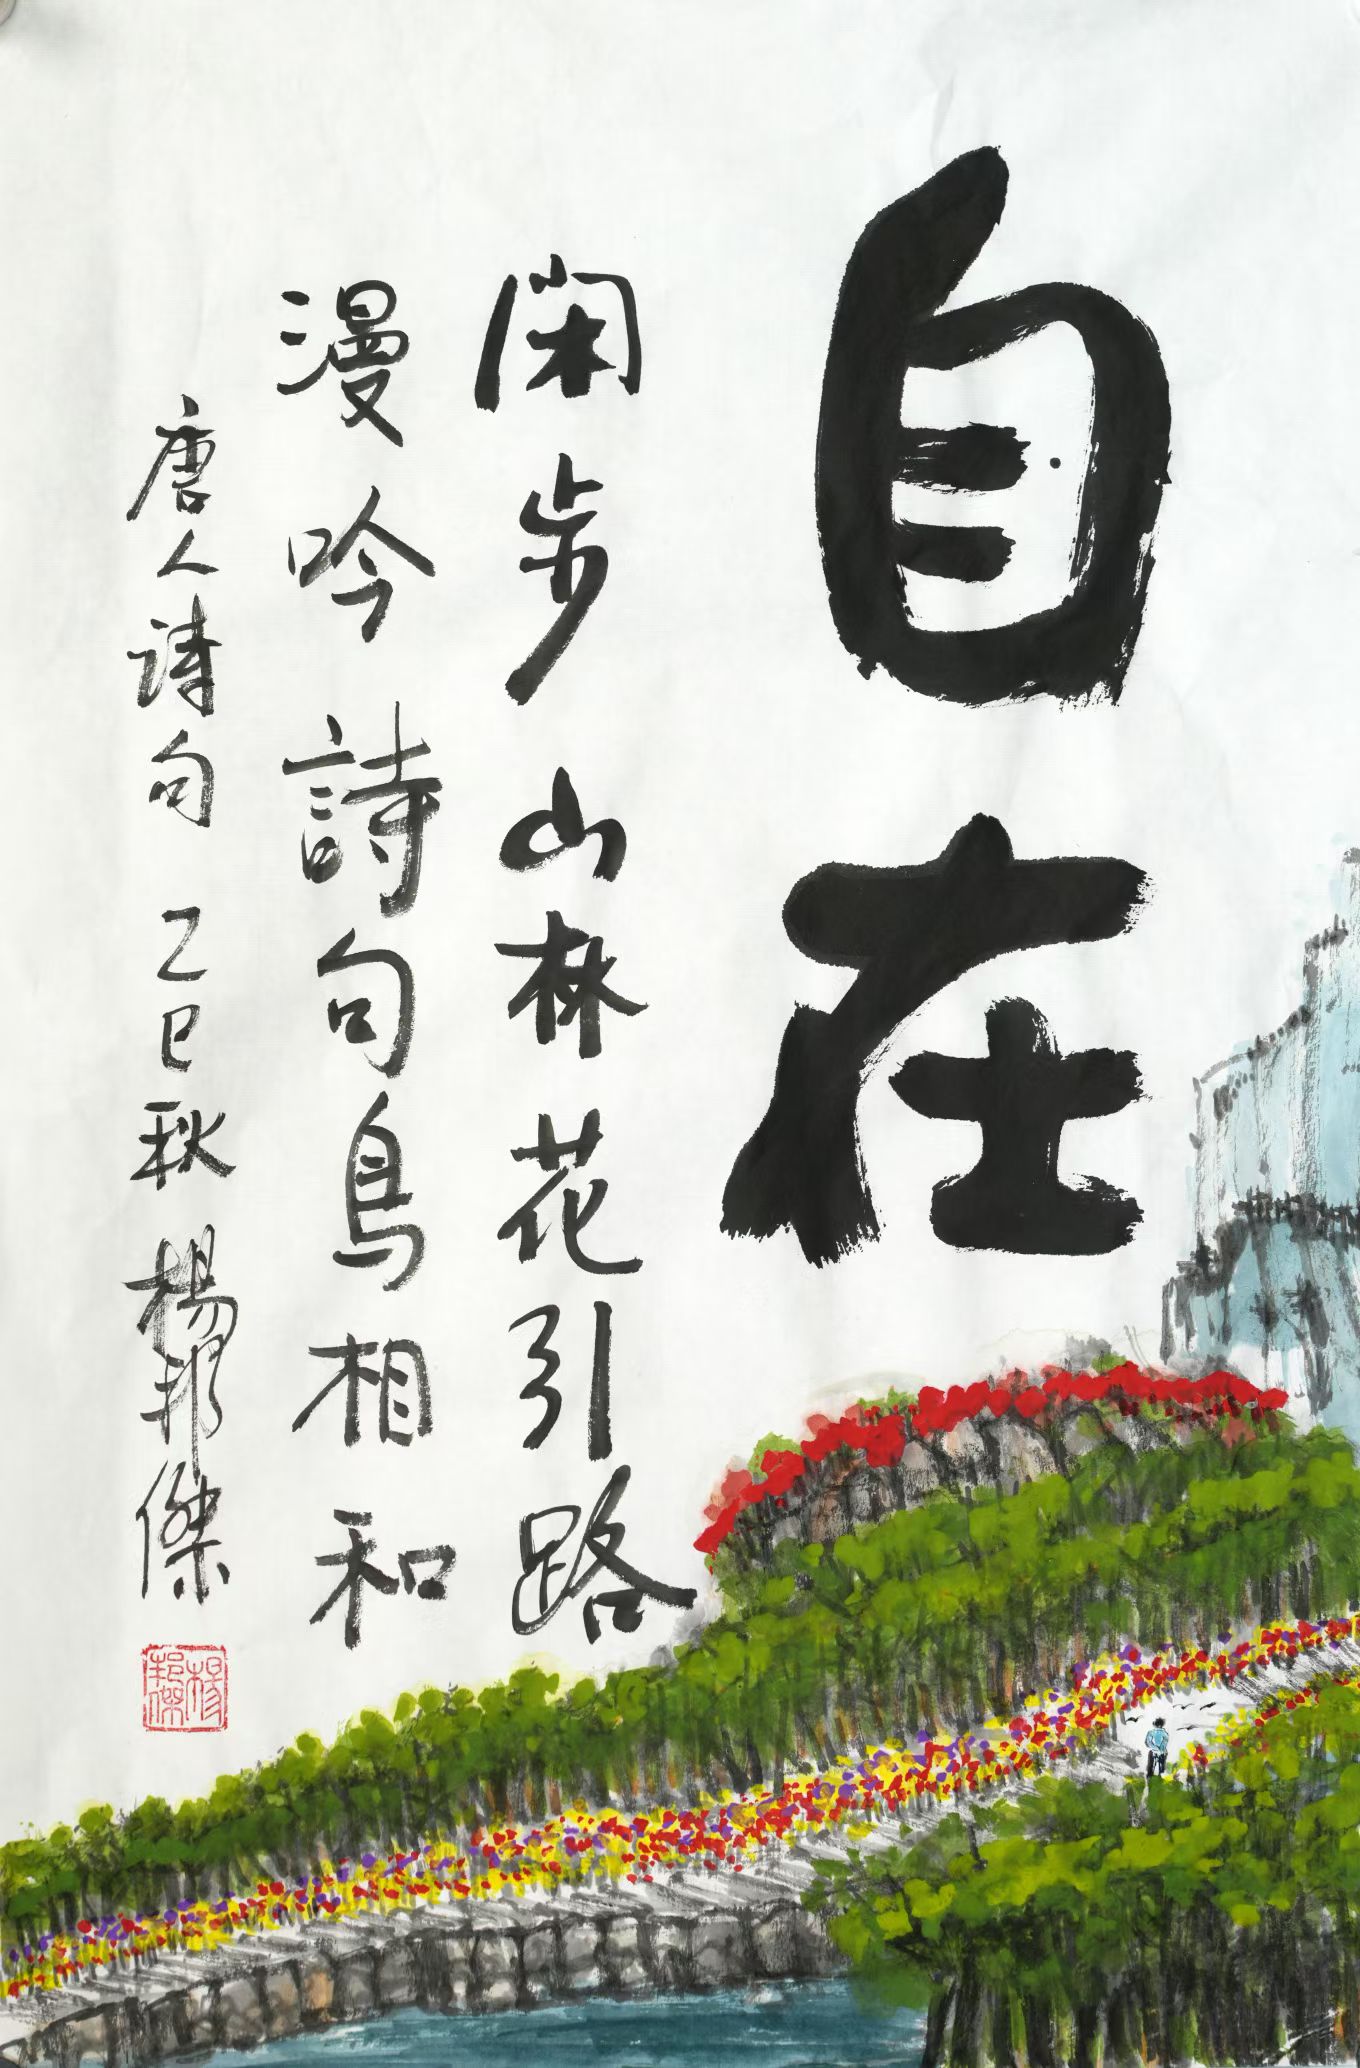 自在
閑步山林花引路
漫吟詩句鳥相和
唐人诗句 乙巳秋 楊邦傑
楊邦傑